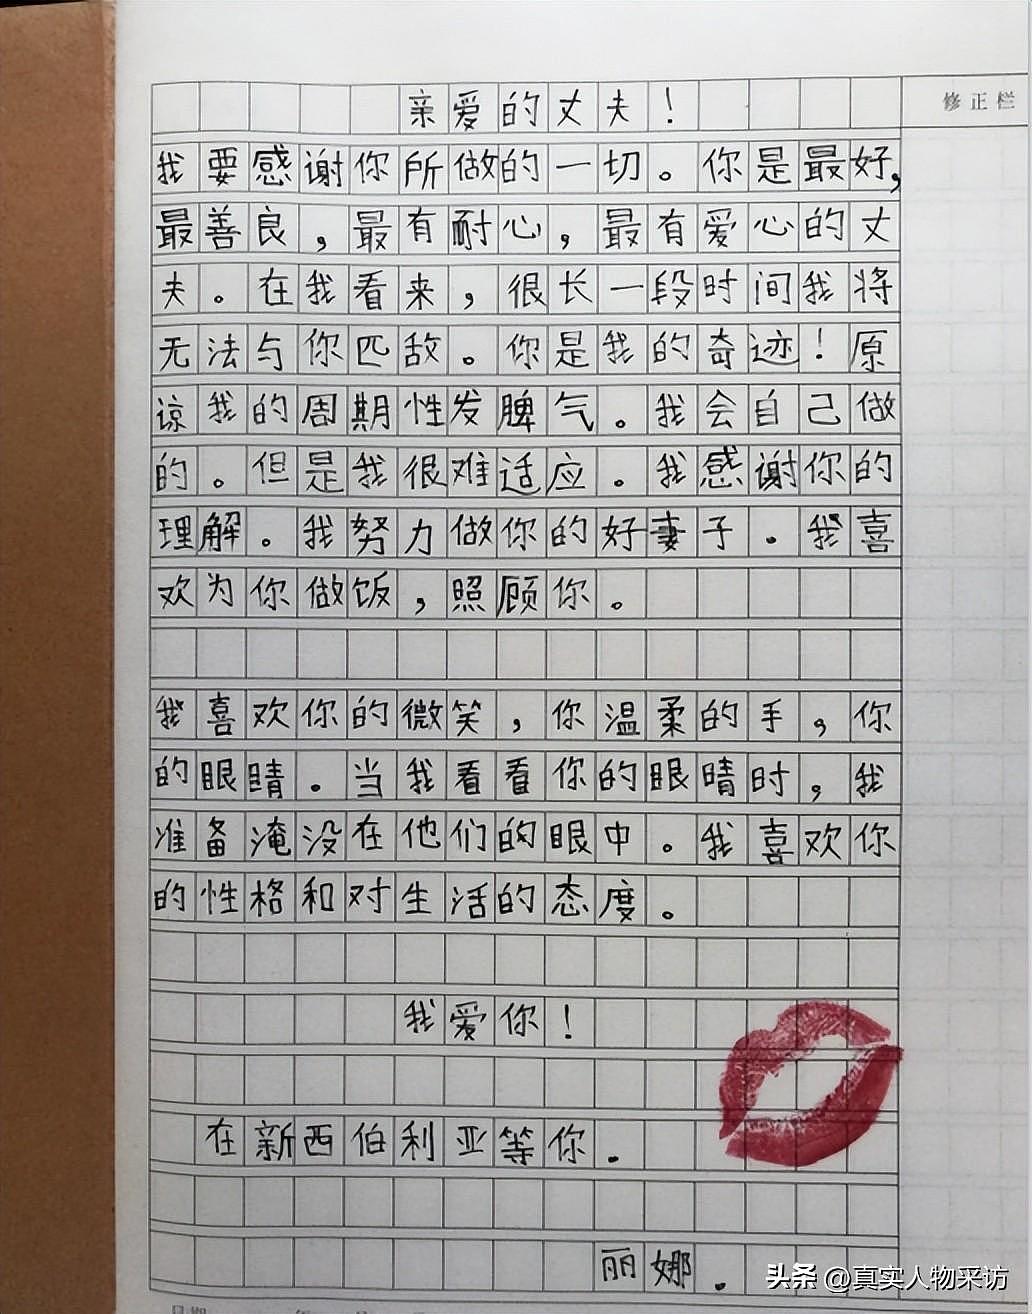 修正栏
亲爱的丈夫！
我要感谢你所做的一切。你是最好，
最善良，最有耐心，最有爱心的丈
夫。在我看来，很长一段时间我将
无法与你匹敌。你是我的奇迹！原
谅我的周期性发脾气。我会自己做
的。但是我很难适应。我感谢你的
理解。我努力做你的好妻子．我喜
欢为你做饭，照顾你。
我喜欢你的微笑，你温柔的手，你
的眼睛．当我看看你的眼睛时，我
准备淹没在他们的眼中。我喜欢你
的性格和对生活的态度。
我爱你！
在新西伯利亚等你．
丽娜．
头条 @真实人物采访